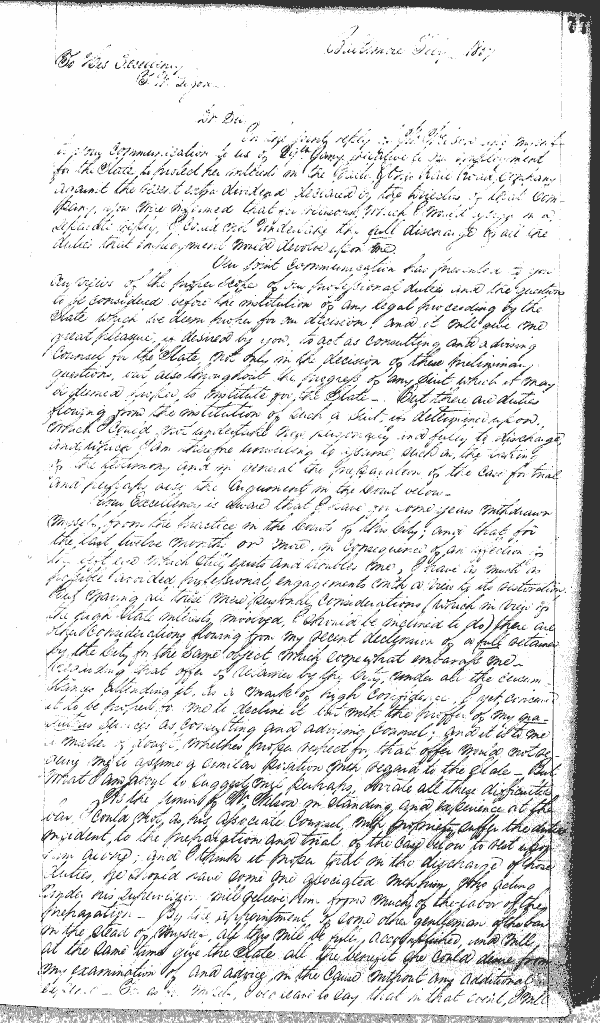 77
Baltimore Feby 1857
To His Excellency
T. W. Ligon
Dr Sir
In the joint reply of Mr Nelson and myself
to your communication to us of 29th Jany relative to our employment
for the State, to protect her interests in the Balt. & Ohio Rail Road Company
against the recent extra dividend declared by the Directors of that Com-
pany, you were informed that for reasons, which I would assign in a
separate reply, I could not undertake the full discharge of all the
duties that employment would devolve upon me.
Our joint communication has presented to you
our views of the proper scope of our professional duties and the questions
to be considered before the institution of any legal proceeding by the
State which we deem proper for our decision; and it will give me
great pleasure, if desired by you, to act as consulting and advising
Counsel for the State, not only in the decision of these preliminary
questions, but also throughout the progress of any suit which it may
be deemed proper to institute for the State. But there are duties
flowing from the institution of such a suit, if determined upon,
which I could not undertake thus personally and fully to discharge,
and which I am therefore unwilling to assume, such as, the taking
of the testimony and in general the preparation of the case for trial
and perhaps also the argument in the Court below.
Your Excellency is aware that I have for some years withdrawn
myself from the practice in the Courts of this City; and that, for
the last twelve months or more, in consequence of an affection of
my which still exists and troubles me, I have as much as
possible avoided professional engagements with a view to its restoration.
But waiving all these mere personal considerations (which in view of
the high State interests involved, I should be inclined to do) there are
other considerations flowing from my recent declension of a full retainer
by the City for the same object which somewhat embarrass me.
Regarding that offer of retainer by the City, under all the circum-
stances attending it, as a mark of high confidence, I yet, conceived
it to be proper for me to decline it but with the proffer of my gra-
tuitous services as consulting and advising Counsel; and it is to me
a matter of doubt, whether proper respect for that offer would not re-
quire me to assume a similar position with regard to the State. But
what I am about to suggest will perhaps, obviate all these difficulties.
As the junior of Mr Nelson in standing, and experience at the
bar, I could not, as his associate Counsel, with propriety suffer the duties
incident, to the preparation and trial of the case below to rest upon
him alone; and I think it proper that in the discharge of those
duties, he should have some one associated with him, who acting
under his supervision will relieve him from much of the labor of the
preparation. By the appointment of some other gentleman of the bar
in the stead of myself, all this will be fully accomplished, and will
at the same time give the State all the benefit she could derive from
my examination of, and advice, in the cause without any additional
I will